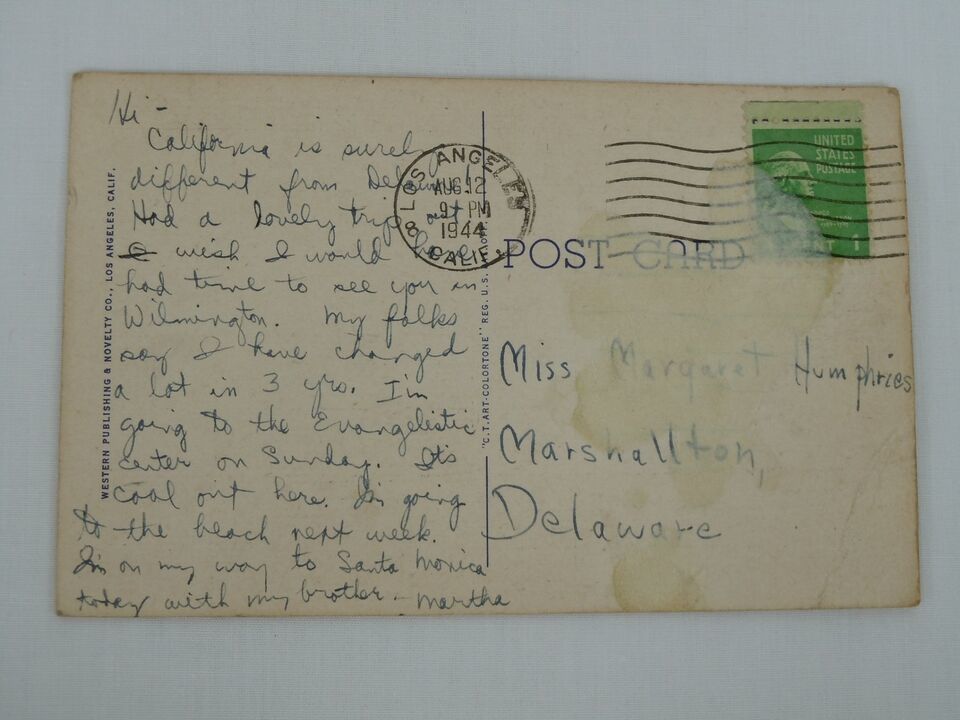 Hi -
California is surely
different from Delaware.
Had a lovely trip out
I wish I would have
had time to see you in
Wilmington. My folks
say I have changed
a lot in 3 yrs. I'm
going to the Evangelistic
center on Sunday. Its
cool out here. I'm going
to the beach next week.
I'm on my way to Santa Monica
today with my brother. - Martha
WESTERN PUBLISHING & NOVELTY CO., LOS ANGELES, CALIF.
"C.T. ART-COLORTONE" REG. U.S.
LOS ANGELES
8
AUG 12
9 PM
1944
CALIF.
UNITED
STATES
POSTAGE
1
POST CARD
Miss Margaret Humphries
Marshallton,
Delaware